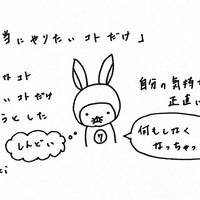 当にやりたい コトだけ」
なコト
いコトだけ
うとした
自分の気持
正直に
しんどい
7
何もしなく
なっちゃっ